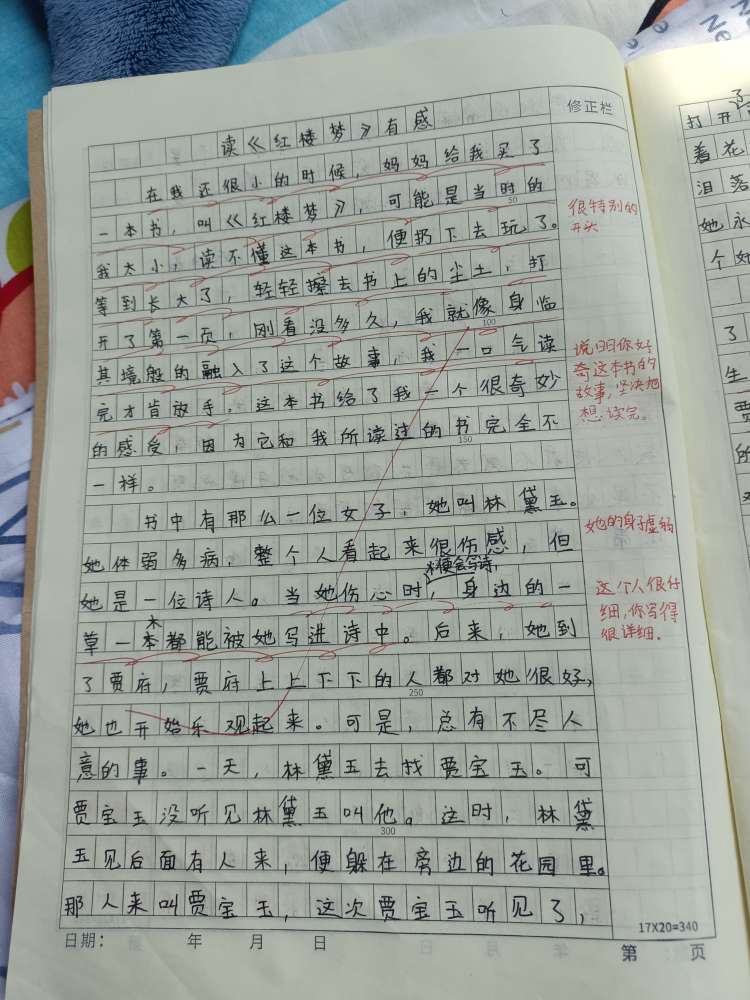 修正栏
读《红楼梦》有感
在我还很小的时候，妈妈给我买了
一本书，叫《红楼梦》，可能是当时的
50
我太小，读不懂这本书，便扔下去玩了。
等到长大了，轻轻擦去书上的尘土，打
开了第一页，刚看没多久，我就像身临
100
其境般的融入了这个故事，我一口气读
完才肯放手。这本书给了我一个很奇妙
的感受，因为它和我所读过的书完全不
150
一样。
书中有那么一位女子，她叫林黛玉。
她体弱多病，整个人看起来很伤感，但
便会写诗，
她是一位诗人。当她伤心时，身边的一
草一木都能被她写进诗中。后来，她到
了贾府，贾府上上下下的人都对她很好，
250
她也开始乐观起来。可是，总有不尽人
意的事。一天，林黛玉去找贾宝玉。可
贾宝玉没听见林黛玉叫他。这时，林黛
300
玉见后面有人来，便躲在旁边的花园里。
那人来叫贾宝玉，这次贾宝玉听见了，
17X20=340
日期： 年 月 日
第 页
很特别的
开头
说明你好
奇这本书的
故事，坚决地
想读完。
她的身子虚弱
这个人很仔
细，你写得
很详细。
了
打开
着花
泪落
她永
个她
了
生
贾
所